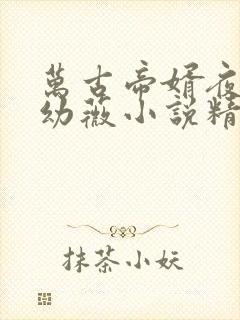 萬古帝婿夜
幼薇小說精
抹茶小妖